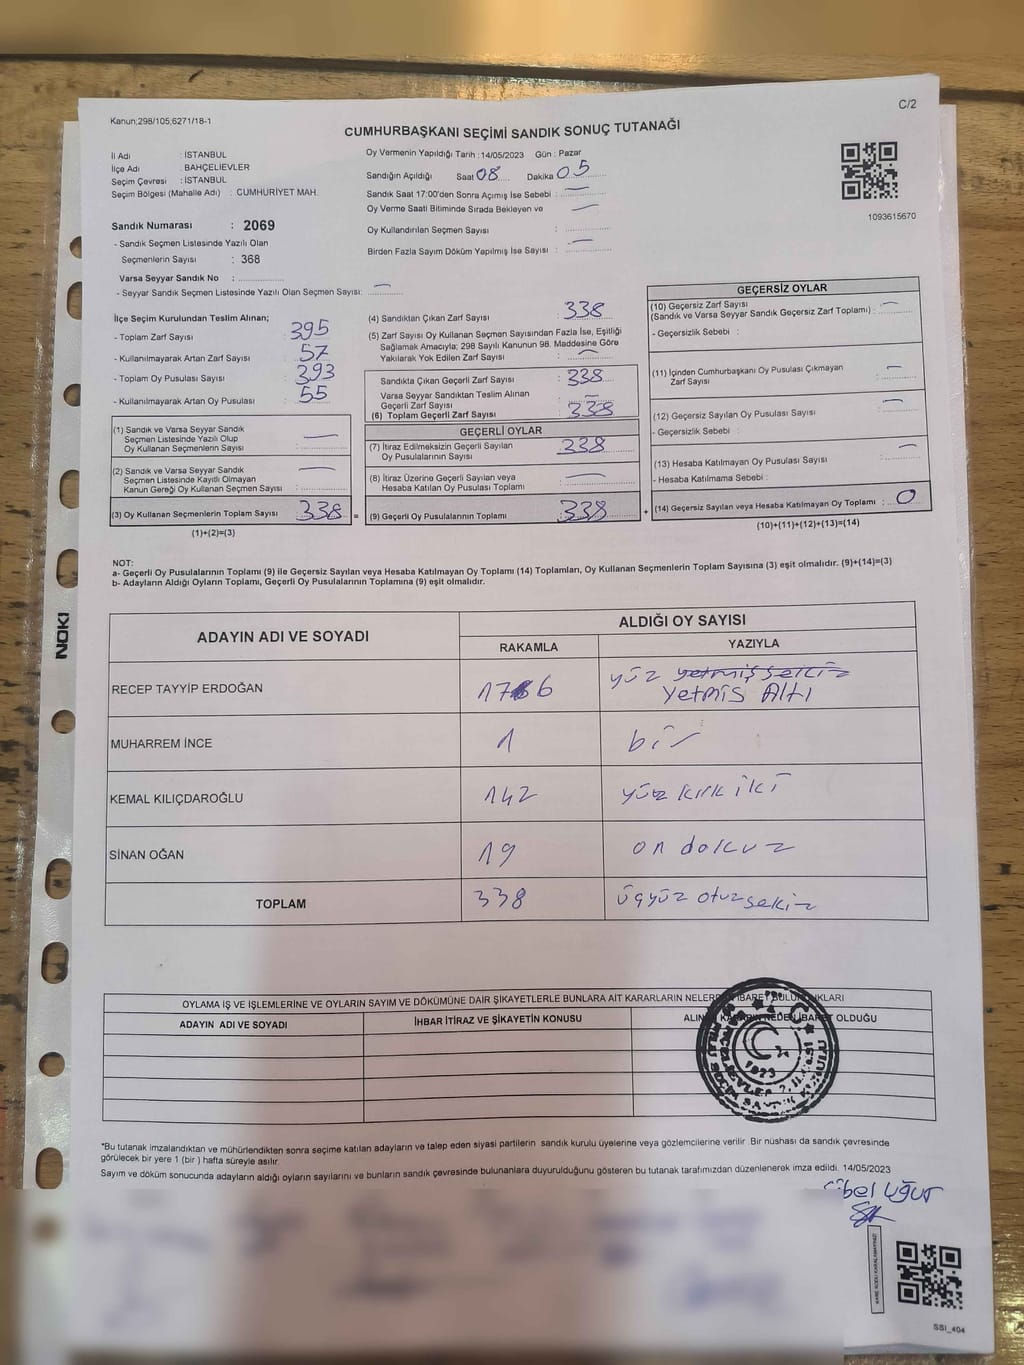 C/2
Kanun;298/105;6271/18-1
CUMHURBAŞKANI SEÇİMİ SANDIK SONUÇ TUTANAĞI
İl Adı : İSTANBUL
İlçe Adı : BAHÇELİEVLER
Seçim Çevresi : İSTANBUL
Seçim Bölgesi (Mahalle Adı) : CUMHURİYET MAH.
Sandık Numarası : 2069
- Sandık Seçmen Listesinde Yazılı Olan
Seçmenlerin Sayısı : 368
Varsa Seyyar Sandık No :
- Seyyar Sandık Seçmen Listesinde Yazılı Olan Seçmen Sayısı: —
Oy Vermenin Yapıldığı Tarih : 14/05/2023 Gün : Pazar
Sandığın Açıldığı Saat 08 Dakika 05
Sandık Saat 17:00'den Sonra Açımış İse Sebebi : —
Oy Verme Saati Bitiminde Sırada Bekleyen ve —
Oy Kullandırılan Seçmen Sayısı :
Birden Fazla Sayım Döküm Yapılmış İse Sayısı : —
1093615670
İlçe Seçim Kurulundan Teslim Alınan;
- Toplam Zarf Sayısı : 395
- Kullanılmayarak Artan Zarf Sayısı : 57
- Toplam Oy Pusulası Sayısı : 393
- Kullanılmayarak Artan Oy Pusulası : 55
(1) Sandık ve Varsa Seyyar Sandık
Seçmen Listesinde Yazılı Olup
Oy Kullanan Seçmenlerin Sayısı : —
(2) Sandık ve Varsa Seyyar Sandık
Seçmen Listesinde Kayıtlı Olmayan
Kanun Gereği Oy Kullanan Seçmen Sayısı : —
(3) Oy Kullanan Seçmenlerin Toplam Sayısı : 338 =
(1)+(2)=(3)
(4) Sandıktan Çıkan Zarf Sayısı : 338
(5) Zarf Sayısı Oy Kullanan Seçmen Sayısından Fazla İse, Eşitliği
Sağlamak Amacıyla; 298 Sayılı Kanunun 98. Maddesine Göre
Yakılarak Yok Edilen Zarf Sayısı : —
Sandıkta Çıkan Geçerli Zarf Sayısı : 338
Varsa Seyyar Sandıktan Teslim Alınan
Geçerli Zarf Sayısı : —
(6) Toplam Geçerli Zarf Sayısı : 338
GEÇERLİ OYLAR
(7) İtiraz Edilmeksizin Geçerli Sayılan
Oy Pusulalarının Sayısı : 338
(8) İtiraz Üzerine Geçerli Sayılan veya
Hesaba Katılan Oy Pusulası Toplamı : —
(9) Geçerli Oy Pusulalarının Toplamı : 338 +
GEÇERSİZ OYLAR
(10) Geçersiz Zarf Sayısı
(Sandık ve Varsa Seyyar Sandık Geçersiz Zarf Toplamı) : —
- Geçersizlik Sebebi :
(11) İçinden Cumhurbaşkanı Oy Pusulası Çıkmayan
Zarf Sayısı : —
(12) Geçersiz Sayılan Oy Pusulası Sayısı : —
- Geçersizlik Sebebi :
(13) Hesaba Katılmayan Oy Pusulası Sayısı : —
- Hesaba Katılmama Sebebi :
(14) Geçersiz Sayılan veya Hesaba Katılmayan Oy Toplamı : 0
(10)+(11)+(12)+(13)=(14)
NOT:
a- Geçerli Oy Pusulalarının Toplamı (9) ile Geçersiz Sayılan veya Hesaba Katılmayan Oy Toplamı (14) Toplamları, Oy Kullanan Seçmenlerin Toplam Sayısına (3) eşit olmalıdır. (9)+(14)=(3)
b- Adayların Aldığı Oyların Toplamı, Geçerli Oy Pusulalarının Toplamına (9) eşit olmalıdır.
NOKI
ADAYIN ADI VE SOYADI ALDIĞI OY SAYISI
RAKAMLA YAZIYLA
RECEP TAYYİP ERDOĞAN 176 yüz yetmişsekiz
Yetmiş Altı
MUHARREM İNCE 1 bir
KEMAL KILIÇDAROĞLU 142 yüz kırk iki
SİNAN OĞAN 19 on dokuz
TOPLAM 338 üçyüz otuzsekiz
OYLAMA İŞ VE İŞLEMLERİNE VE OYLARIN SAYIM VE DÖKÜMÜNE DAİR ŞİKAYETLERLE BUNLARA AİT KARARLARIN NELERDEN İBARET BULUNDUKLARI
ADAYIN ADI VE SOYADI İHBAR İTİRAZ VE ŞİKAYETİN KONUSU ALINAN KARARIN NEDEN İBARET OLDUĞU
1923
*Bu tutanak imzalandıktan ve mühürlendikten sonra seçime katılan adayların ve talep eden siyasi partilerin sandık kurulu üyelerine veya gözlemcilerine verilir. Bir nüshası da sandık çevresinde
görülecek bir yere 1 (bir ) hafta süreyle asılır.
Sayım ve döküm sonucunda adayların aldığı oyların sayılarını ve bunların sandık çevresinde bulunanlara duyurulduğunu gösteren bu tutanak tarafımızdan düzenlenerek imza edildi. 14/05/2023
Uğur
SSI_404